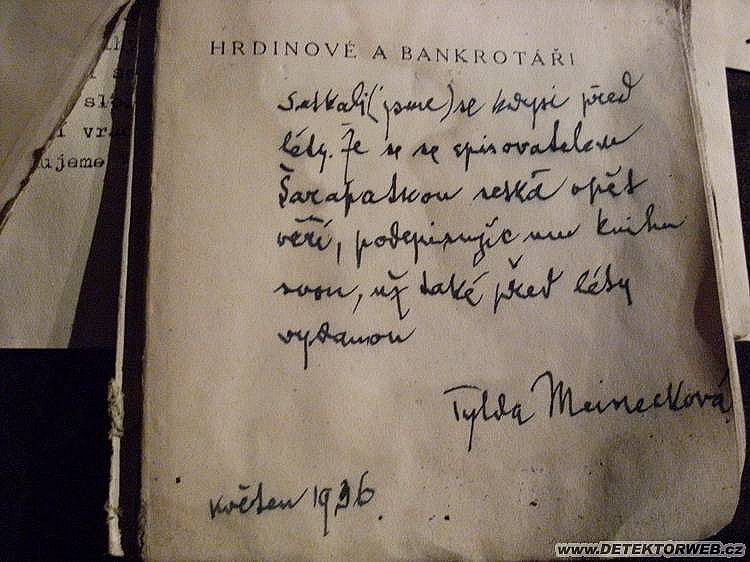 HRDINOVÉ A BANKROTÁŘI
Setkali (jsme) se kdysi před
léty. Že se se spisovatelem
Šarapatkou setká opět
věří, podepisujíc mu knihu
svou, už také před léty
vydanou
Tylda Meinecková
Květen 1936
slo
vra
ujeme
www.DETEKTORWEB.cz